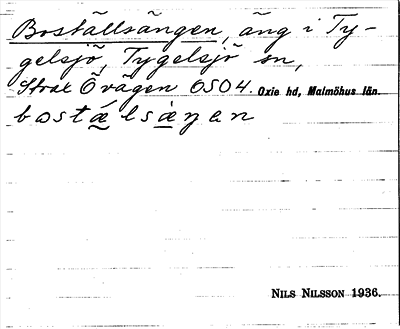 Boställsängen, äng i Ty-
gelsjö, Tygelsjö sn,
Strax Ö vägen OSO4. Oxie hd, Malmöhus län.
bostæ̀lsæ̀ŋen
NILS NILSSON 1936.